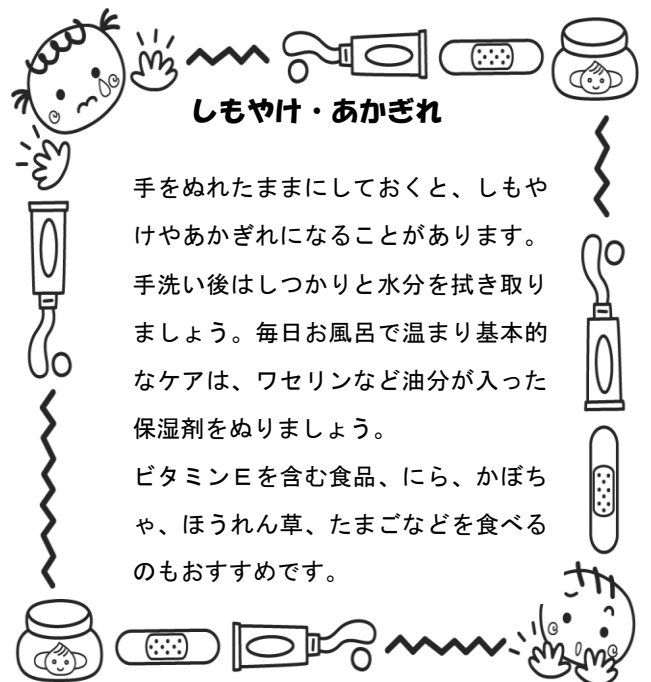 しもやけ・あかぎれ
手をぬれたままにしておくと、しもや
けやあかぎれになることがあります。
手洗い後はしつかりと水分を拭き取り
ましょう。毎日お風呂で温まり基本的
なケアは、ワセリンなど油分が入った
保湿剤をぬりましょう。
ビタミンＥを含む食品、にら、かぼち
ゃ、ほうれん草、たまごなどを食べる
のもおすすめです。